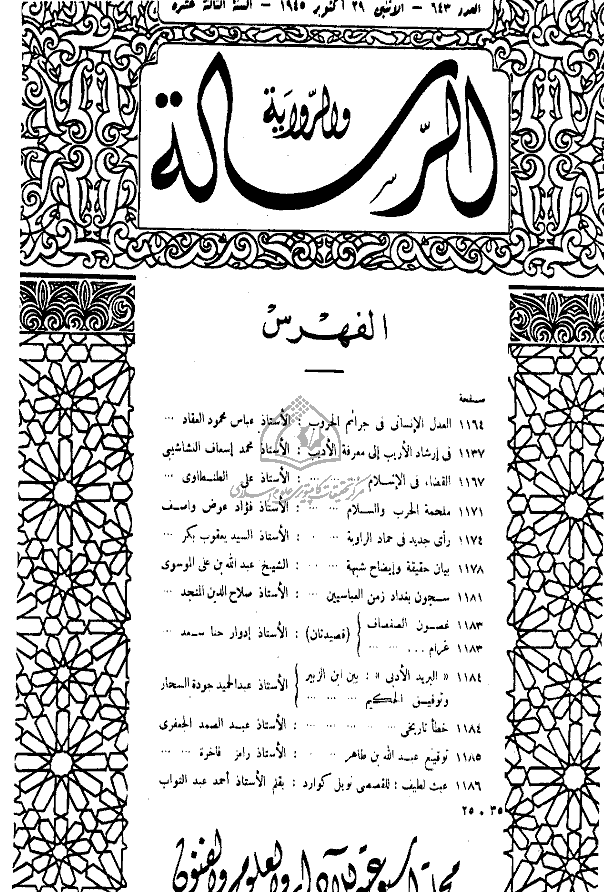 العدد ٦٤٣ - الاثنين ٢٩ أكتوبر ١٩٤٥ - السنة الثالثة عشرة
الرسالة
والرواية
الفهرس
صفحة
١١٦٤ العدل الإنسانى فى جرائم الحروب : الأستاذ عباس محمود العقاد ...
١١٣٧ فى إرشاد الأريب إلى معرفة الأديب : الأستاذ محمد إسعاف النشاشيبى
١١٦٧ القضاء فى الإسلام ... ... : الأستاذ على الطنطاوى ...
١١٧١ ملحمة الحرب والسلام ... ... : الأستاذ فؤاد عوض واصف
١١٧٤ رأى جديد فى حماد الراوية ... : الأستاذ السيد يعقوب بكر ...
١١٧٨ بيان حقيقة وإيضاح شبهة ... ... : الشيخ عبد الله بن على الموسوى
١١٨١ سجون بغداد زمن العباسيين ... : الأستاذ صلاح الدين المنجد ...
١١٨٣ غصون الصفصاف } (قصيدتان) : الأستاذ إدوار حنا سعد ...
١١٨٣ غرام ... ... ...
١١٨٤ « البريد الأدبى » : بين ابن الزبير } الأستاذ عبد الحميد جودة السحار
وتوفيق الحكيم ... ... ...
١١٨٤ خطأ تاريخى ... ... ... ... : الأستاذ عبد الصمد الجعفرى
١١٨٥ توقيع عبد الله بن طاهر ... ... : الأستاذ رامز فاخرة ... ...
١١٨٦ عبث لطيف : للقصصى نويل كوارد : بقلم الأستاذ أحمد عبد التواب
٢٥ . ٣٥
مجلة أسبوعية للآداب والعلوم والفنون
مرکز تحقیقات کامپیوتری علوم اسلامی